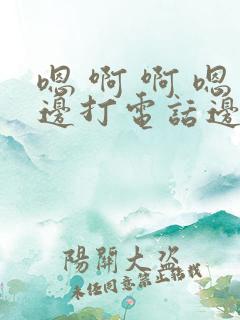 嗯 啊 啊 嗯
邊打電話邊
陽關大盜
未任同意禁止轉載